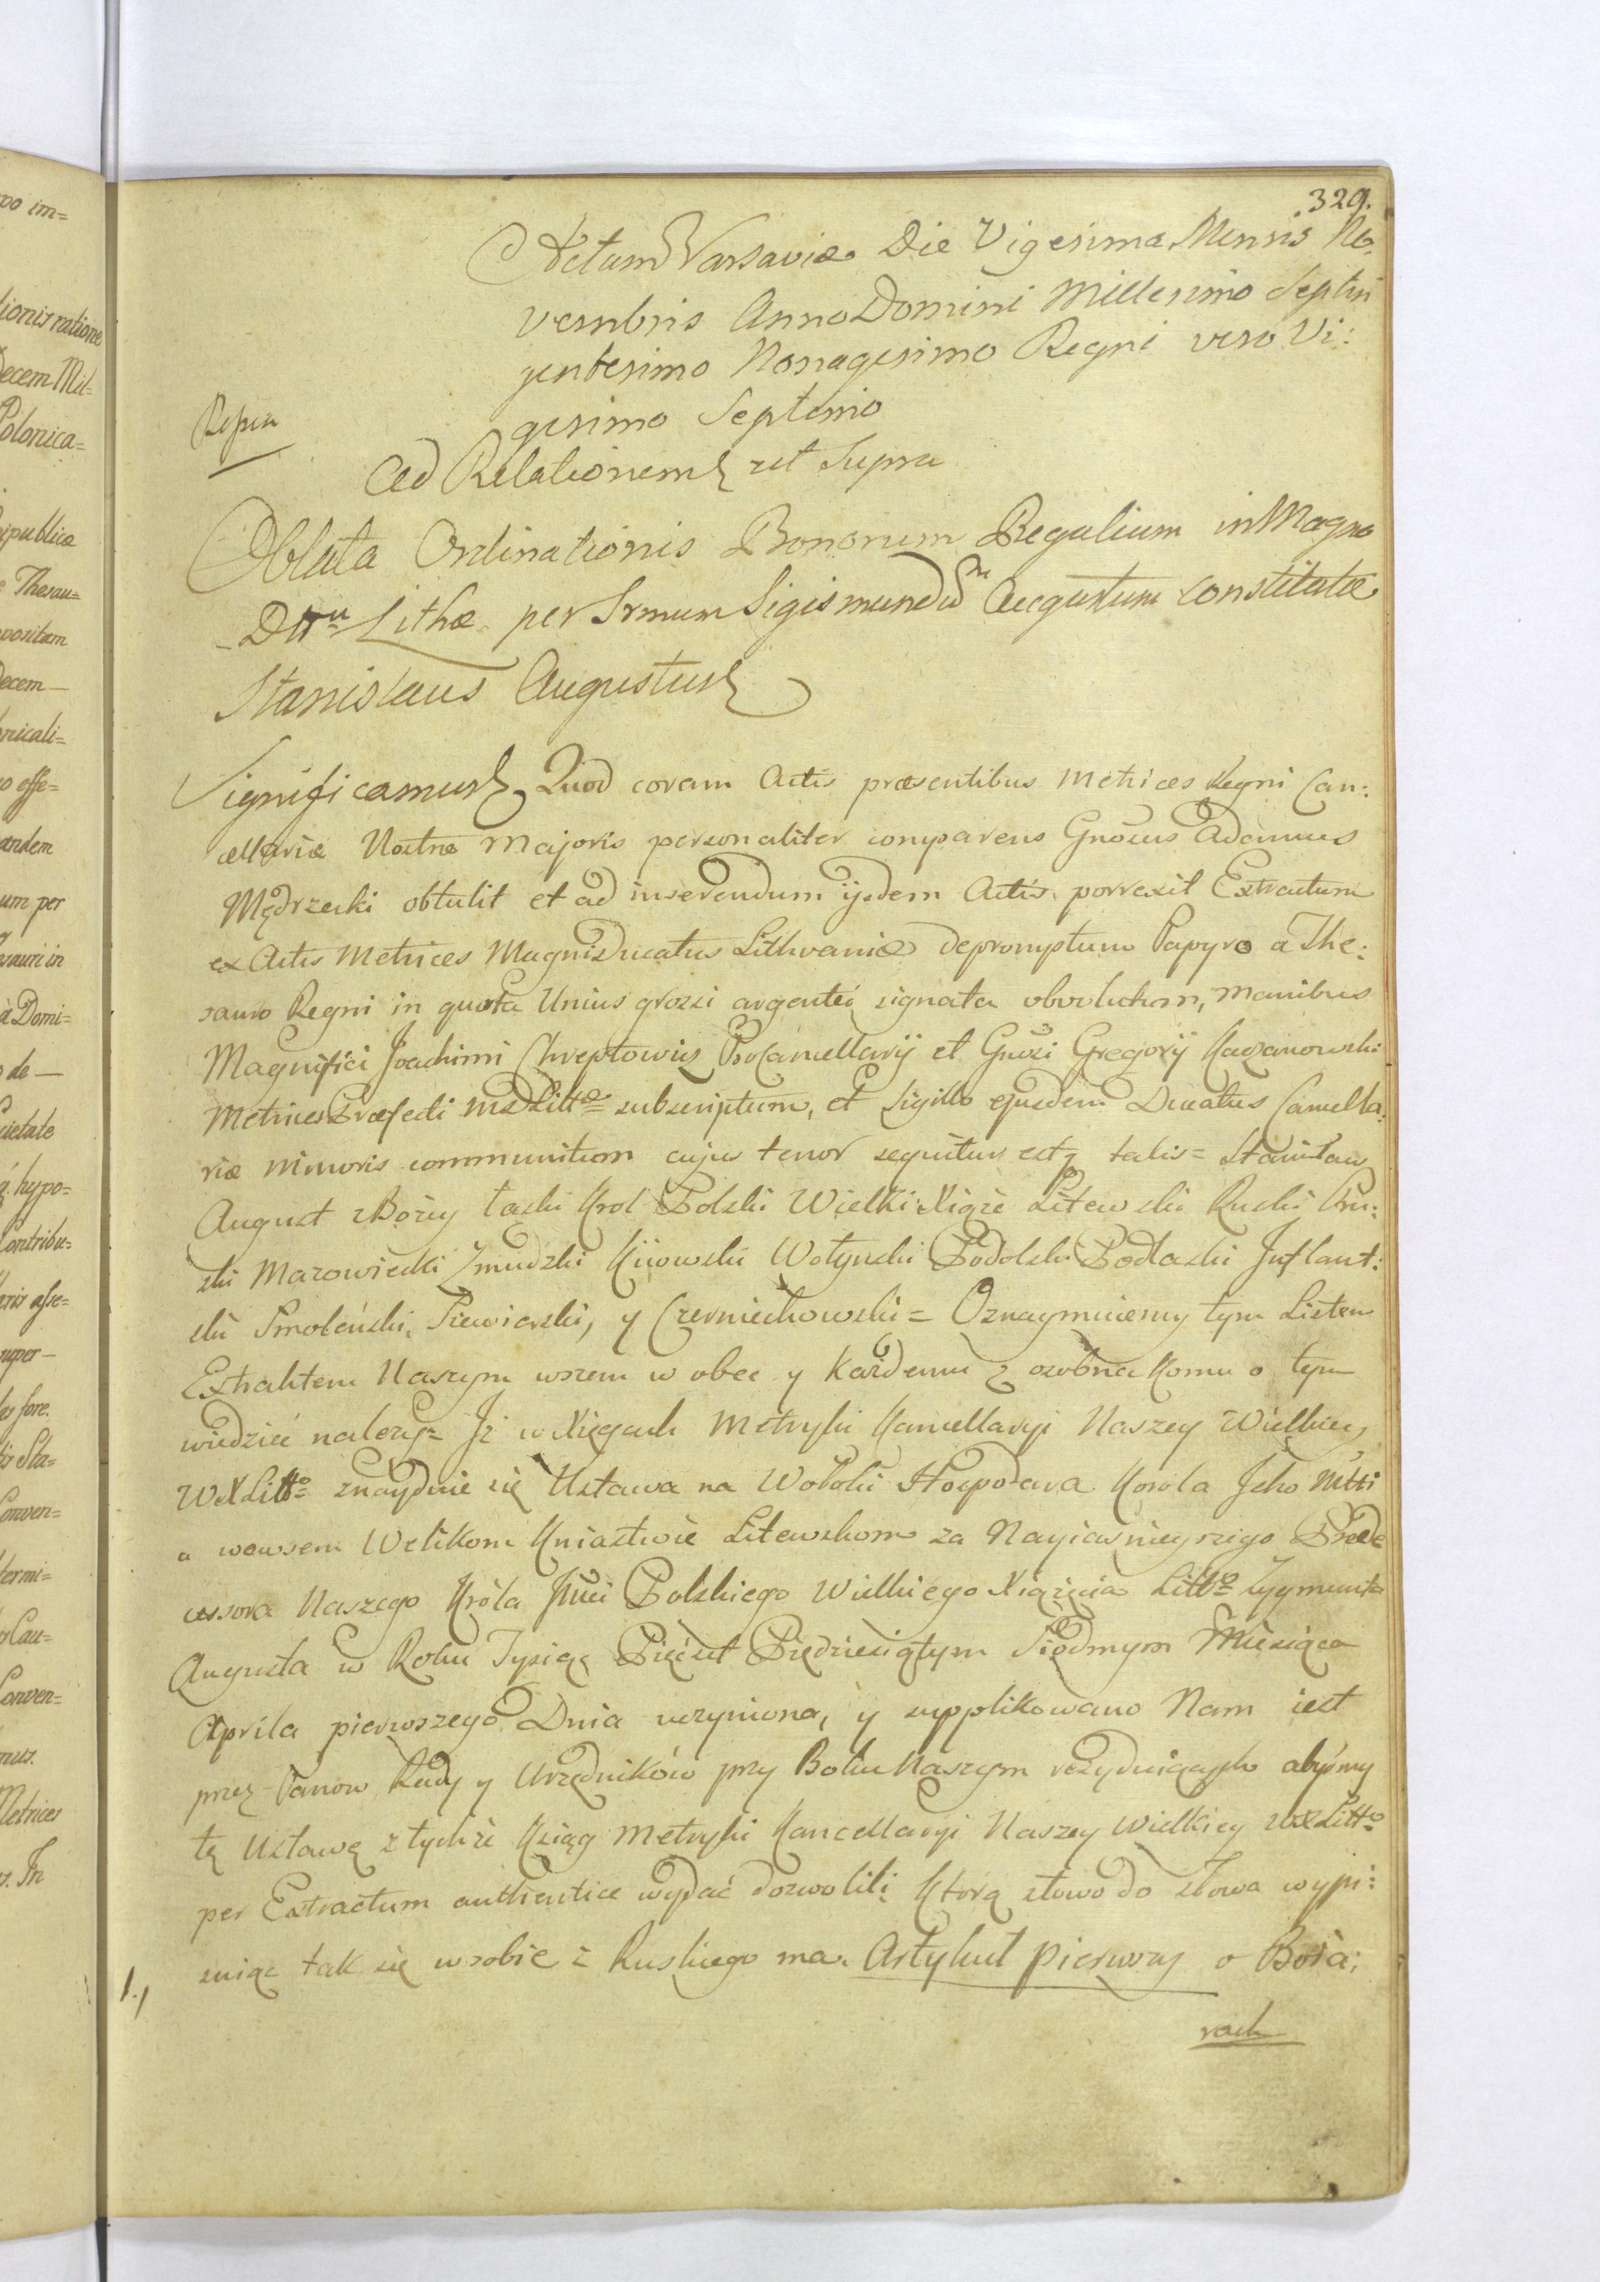 329.
Actum Varsaviæ Die Vigesima Mensis No=
vembris Anno Domini Millesimo Septin
gentesimo Nonagesimo Regni vero Vi=
gesimo Septimo
Ad Relationem ut Supra
Oblata Ordinationis Bonorum Regalium in Magno
Dttu Lithæ per Srmum Sigismundum Augustum constitutæ
Stanislaus Augustus
Significamus Quod coram Actis præsentibus Metrices Regni Can:
cellariæ Nostræ Majoris personaliter comparens Gnosus Adamus
Mędrzecki obtulit et ad inserendum ijsdem Actis porrexit Extractum
ex Actis Metrices Magni Ducatus Lithvaniæ depromptum Papyro a The:
sauro Regni in quota Unius grossi argentei signata obvolutum, manibus
Magnifici Joachimi Chreptowicz ProCancellarij et Gnosi Gregorij Kaczanowski
Metrices Præfecti MDLittæ subscriptum, et Sigillo ejusdem Ducatus Cancella:
riæ minoris communitum cujus tenor sequitur estq talis = Stanisław
August z Bożey łaski Krol Polski Wielki Xiąże Litewski Ruski Pru:
ski Mazowiecki Zmudzki Kijowski Wołynski Podolski Podlaski Inflant:
ski Smoleński, Siewierski, y Czerniechowski = Oznaymuiemy tym Listem
Extraktem Naszym wszem w obec y Każdemu z osobna Komu o tym
wiedzieć nalezy = Iż w Xięgach Metryki Kancellaryi Naszey Wielkiey
WXLitto znayduie się Ustawa na Wołoki Hospodara Korola Jeho Mtti
u wowsem Welikom Kniaztwie Litewskom za Nayiaśnieyszego Prede
cessora Naszego Króla Jmci Polskiego Wielkiego Xiążęcia Litto Zygmunta
Augusta w Roku Tysiąc Pięćset Piędziesiątym Siodmym Miesiąca
Aprila pierwszego Dnia uczyniona, y supplikowano Nam iest
przez Panow Rady y Urzędników przy Boku Naszym rezyduiących abyśmy
tę Ustawę z tychże Xsiąg Metryki Kancellaryi Naszey Wielkiey WXLitto
per Extractum authentice wydać dozwolili: Która słowo do słowa wypi:
suiąc tak się w sobie z Ruskiego ma. Artykuł pierwszy o Boia:
1.,
rach